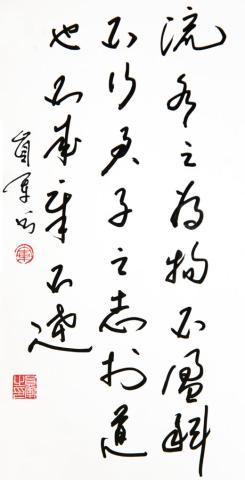 流水之为物不盈科
不行君子之志于道
也不成章不达